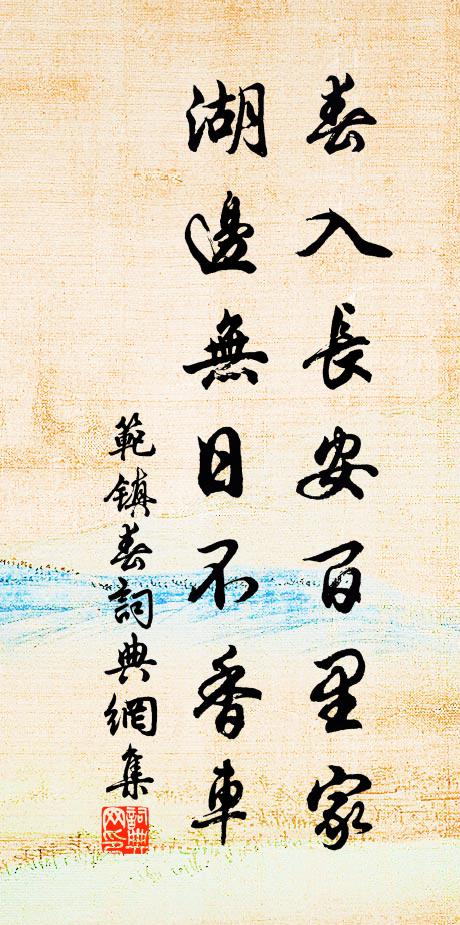 春入長安百里家
湖邊無日不香車
範镇春詞典網集
詞典網印